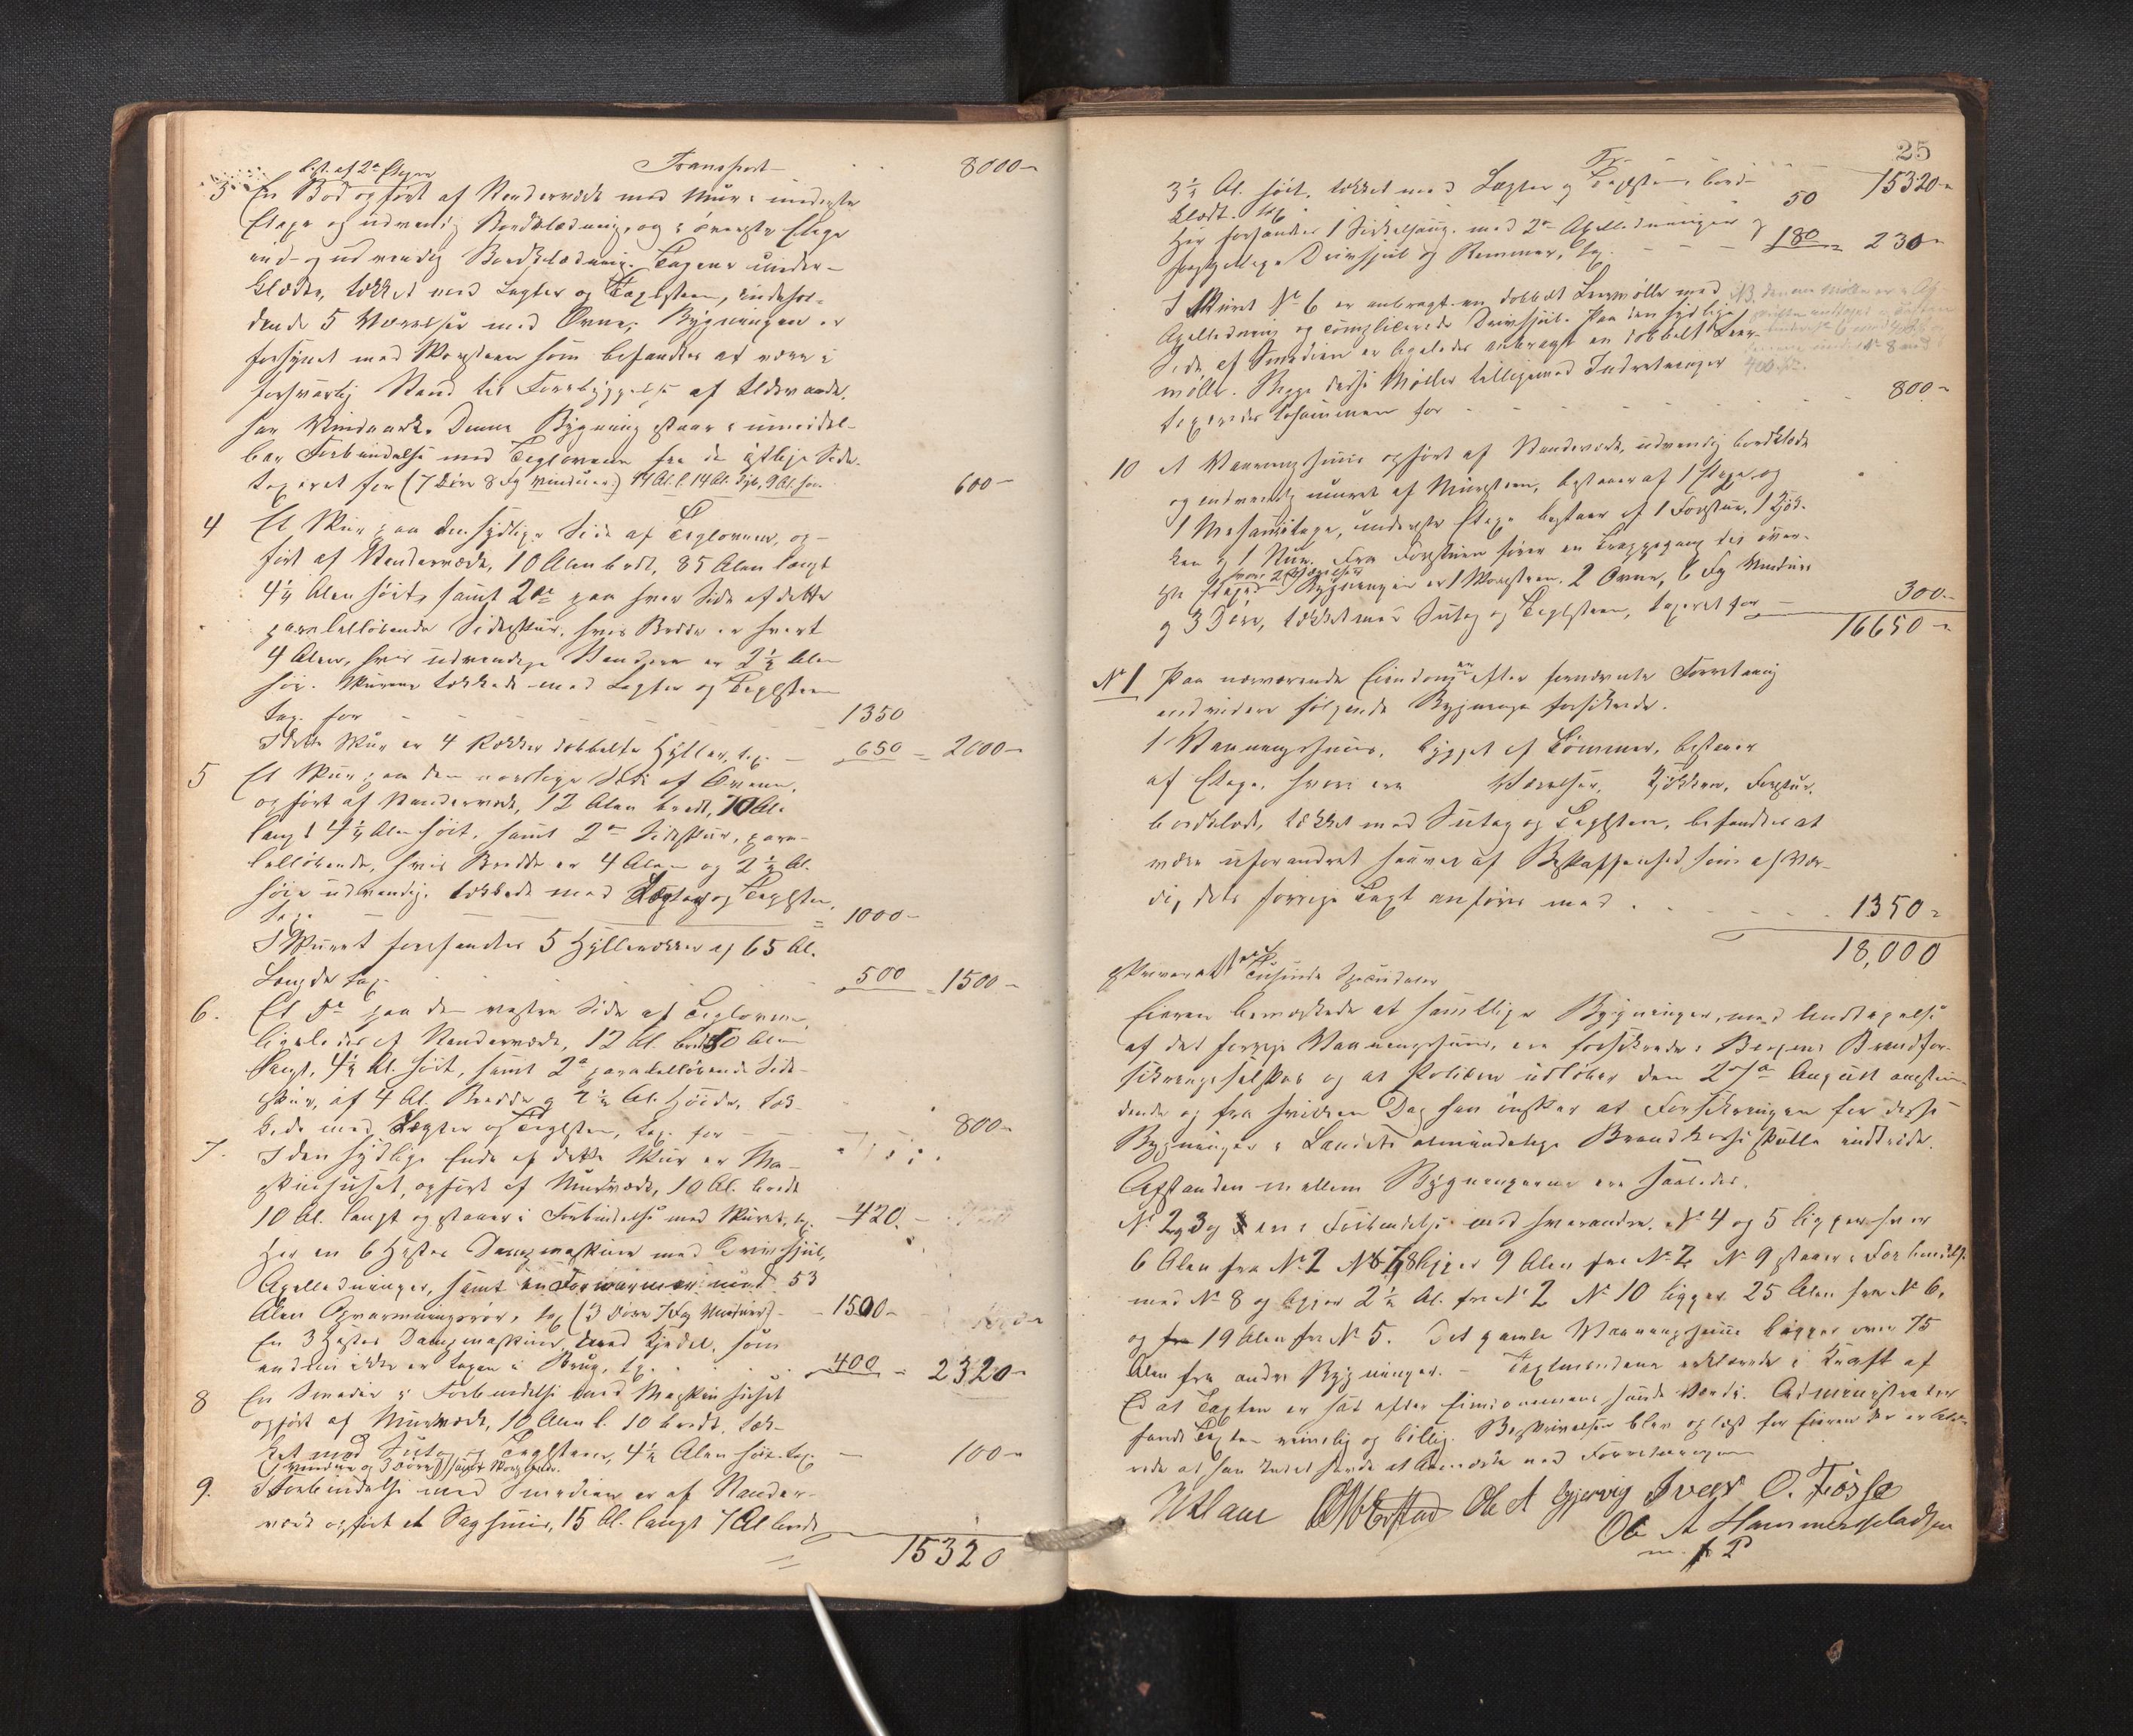 best. af 2de Etager
Transport 8000-
3 En Bod opført af Stenderværk med Muur i underste
Etage og udvendig Bordklædning, og i øverste Etage
ind- og udvendig Bordklædning. Tagene under-
klædte, tækket med Lægter og Taglsteen, indehol-
dende 5 Værelser med Ovne, Bygningen er
forsynet med Skorsteen som befandtes at være i
forsvarlig Stand til Forebyggelse af Ildsvaade,
har Vindverk. Denne Bygning staar i umiddel-
bar Forbindelse med Teglovnen fra den østlige Side.
taxeret for (7 Døre 8 Fag Vinduer) 14 Al. l. 14 Al. dyb, 9 Al. høi 600-
4 Et Skur paa den sydlige Side af Teglovnen, op-
ført af Stenderværk, 10 Alen bredt, 85 Alen langt
4¼ Alen høit, samt 2de paa hver Side af dette
parallelløbende Sideskur, hvis Bredde er hvert
4 Alen, hvis udvendige Stendere er 2½ Alen
høi. Skurene tækkede med Lægter og Taglsteen
tax. for 1350
I dette Skur er 4 Rækker dobbelte Hylder, tax. 650 = 2000-
5 Et Skur paa den nordlige Side af Ovnen,
opført af Stenderværk, 12 Alen bredt, 70 Al.
langt 4¼ Alen høit, samt 2de Sideskur, paral-
lelløbende, hvis Bredde er 4 Alen og 2½ Al.
høie udvendig. tækkede med Lægter og Taglsteen,
Tax. = 1000-
I Skuret forefandtes 5 Hylderækker af 65 Al.
Længde tax. 500 = 1500-
6. Et do paa den vestre Side af Teglovnen,
ligeledes af Stenderværk, 12 Al. bredt 50 Alen
langt, 4¼ Al. høit, samt 2de parallelløbende Side-
skur, af 4 Al. Bredde og 2½ Al. Høide, tæk-
kede med Lægter og Taglsteen, tax. for 800-
7. I den sydlige Ende af dette Skur er Ma-
skinhuset, opført af Muurværk, 10 Al. bredt
10 Al. langt og staaer i Forbindelse med Skuret, tax. 420.-
Her en 6 Hestes Dampmaskine med Drivhjul,
Axelledninger, samt en Forvarmer med 53
Alen Opvarmningsrør, tax. (3 Døre 7 Fag Vinduer) 1500-
En 3 Hestes Dampmaskine med Kjedel, som
endnu ikke er tagen i Brug, tax. 400 = 2320-
8 En Smedie i Forbindelse med Maskinhuset
opført af Muurværk, 10 Alen l. 10 bredt, tæk-
ket med Sutag og Taglsteen, 4½ Alen høi. tax. 100-
9. I Forbindelse med Smedien er af Stender-
værk opført et Saghuus, 15 Al. langt 7 Al bredt
15320
25
Tr. 15320-
3½ Al. høit, tækket med Lægter og Taglsteen, bord-
klædt. tax 50
Her forefandtes 1 Sirkelsaug. med 2de Axelledninger og
forskjellige Drivhjul og Remmer, tax. 180 = 230-
I Skuret No 6 er anbragt en dobbelt Leermølle med
Axelledning og complicerede Drivhjul. Paa den sydlige
Side af Smedien er ligeledes anbragt en dobbelt Leer-
mølle. Begge disse Møller tilligemed Indretninger
taxeredes tilsammen for 800-
10 et Vaaningshuus opført af Stenderværk, udvendig bordklædt
og indvendig muret af Muursteen, bestaaer af 1 Etage og
1 Mesaninetage, underste Etage bestaaer af 1 Forstue, 1 Kjøk-
ken og 1 Stue. Fra Forstuen fører en Trappegang til øver-
ste Etage hvori 2 Værelser. I Bygningen er 1 Skorsteen, 2 Ovne, 6 Fag Vinduer
og 3 Døre, tækket med Sutag og Teglsteen, taxeret for 300-
16650-
No 1 Paa nærværende Eiendom er efter foranævnte Forretning
endvidere følgende Bygninger forsikrede.
1 Vaaningshuus, bygget af Tømmer, bestaaer
af Etage, hvori ere Værelser, Kjøkken, Forstue.
bordklædt, tækket med Sutag og Taglsteen, befandtes at
være uforandret saavel af Beskaffenhed som af Vær-
di, dets forrige Taxt anføres med 1350-
18,000
skriver atten Tusinde Speciedaler
Eieren bemærkede at samtlige Bygninger, med Undtagelse
af det forrige Vaaningshuus, ere forsikrede i Bergens Brandfor-
sikringsselskab og at Policen udløber den 27de August anstun-
dende og fra hvilken Dag han ønsker at Forsikringen for disse
Bygninger i Landets almindelige Brandkasse skulle indtræde.
Afstanden mellem Bygningerne ere saaledes.
No 2, 3 og ere i Forbindelse med hverandre. No 4 og 5 ligger hver
6 Alen fra No 2 No 6 7, 8 ligger 9 Alen fra No 2 No 9 staaer i Forbindelse
med No 8 og ligger 2½ Al. fra No 2 No 10 ligger 25 Alen fra No 6.
og fra 19 Alen fra No 5. Det gamle Vaaningshuus ligger over 75
Alen fra andre Bygninger. - Taxtmændene erklærede i Kraft af
Ed at Taxten er sat efter Eiendommens sande Værdi. Administrator
fandt Taxten rimelig og billig. Beskrivelsen blev oplæst for Eieren der erklæ-
rede at han Intet havde at bemærke ved Forretningen
Ole A Gjervig Iver O. Fosse
Ole A Hammersgladsen
m. f P